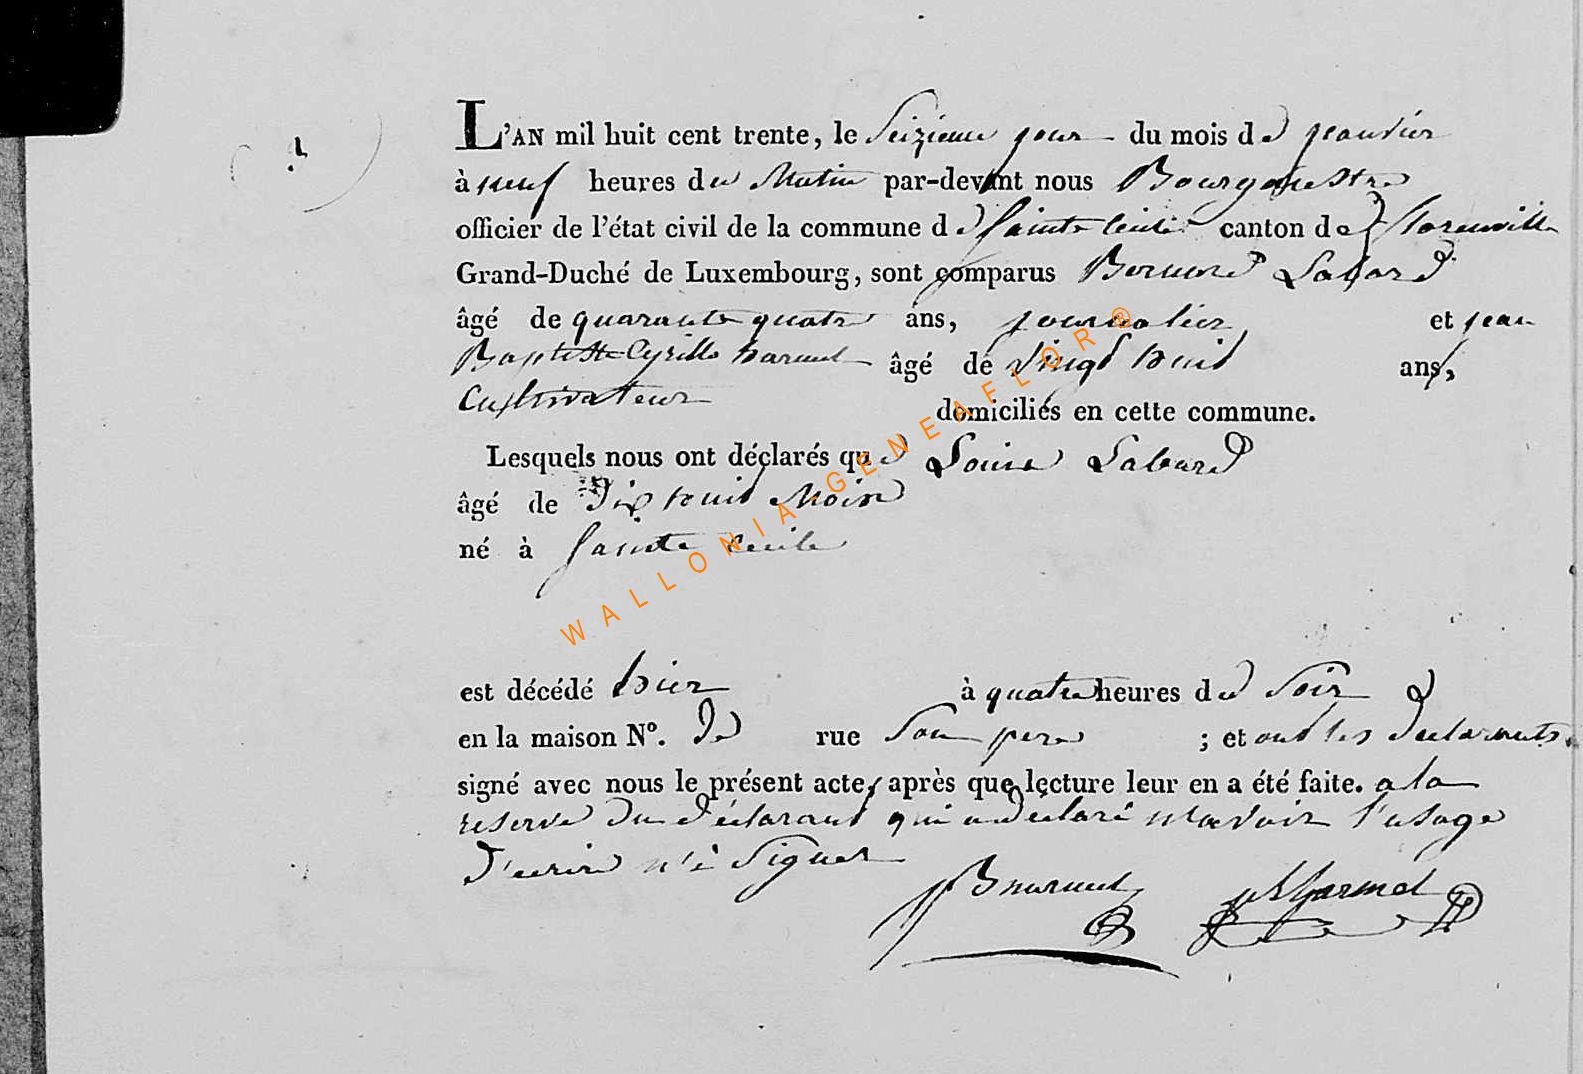 L'AN mil huit cent trente, le Seizieme jour du mois de jeanvier
à neuf heures du Matin par-devant nous Bourgmestre
officier de l'état civil de la commune de Sainte Cecile canton de florenville
Grand-Duché de Luxembourg, sont comparus Bernard Labard
âgé de quarante quatre ans, journalier et jean
Baptiste Cyrille harmel âgé de vingt huit ans,
Cultivateur domiciliés en cette commune.
Lesquels nous ont déclarés que Louise Labard
âgé de Dix huit Mois
né à Sainte Cecile
est décédé hier à quatre heures du Soir &
en la maison N°. de rue Son pere ; et ont les declarants
signé avec nous le présent acte, après que lecture leur en a été faite. a la
reserve du déclarant qui a declaré n'avoir l'usage
d'ecrire n'i Signer
WALLONIA-GENEAFLOR®